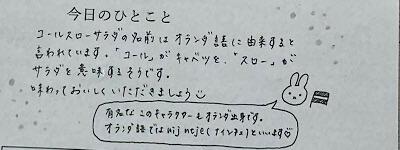 今日のひとこと
コールスローサラダの名前はオランダ語に由来すると
言われています。「コール」がキャベツを、「スロー」が
サラダを意味するそうです。
味わっておいしくいただきましょう
有名なこのキャラクターもオランダ出身です。
オランダ語ではnijntje(ナインチェ)といいます♡